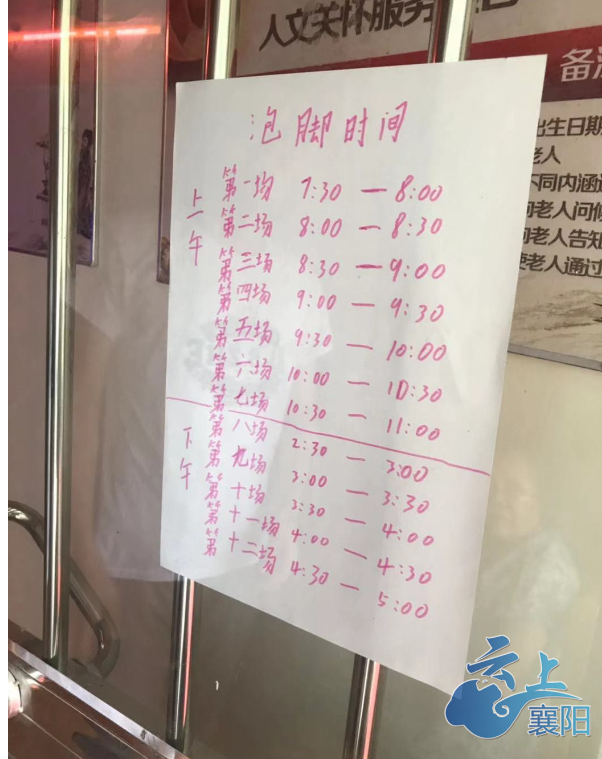 人文关怀服务
备
出生日期
老人
不同内涵
向老人问候
向老人告知
使老人通过
泡脚时间
上午
第一场 7:30 — 8:00
第二场 8:00 — 8:30
第三场 8:30 — 9:00
第四场 9:00 — 9:30
第五场 9:30 — 10:00
第六场 10:00 — 10:30
第七场 10:30 — 11:00
下午
第八场 2:30 — 3:00
第九场 3:00 — 3:30
第十场 3:30 — 4:00
第十一场 4:00 — 4:30
第十二场 4:30 — 5:00
云上
襄阳